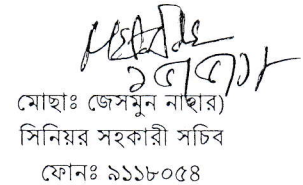 মোছাঃ জেসমুন নাহার)
সিনিয়র সহকারী সচিব
ফোনঃ ৯১১৮০৫৪